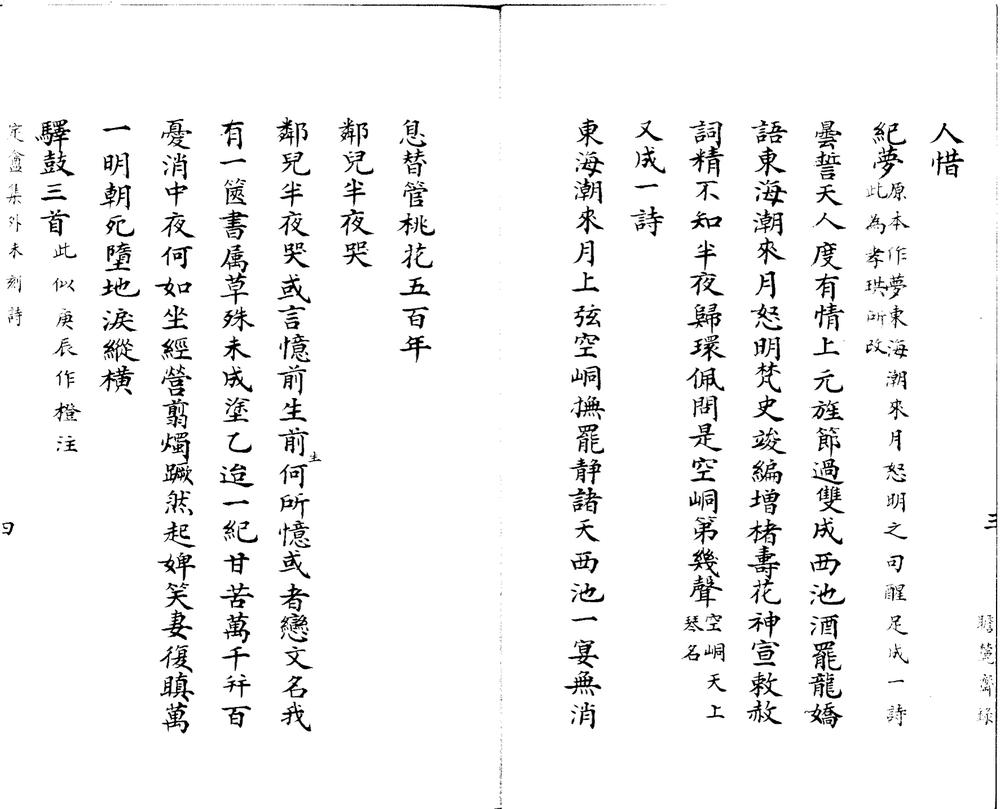 人惜
紀夢原本作夢東海潮來月怒明之句醒足成一詩
此為孝珙所改
曇誓天人度有情上元旌節過雙成西池酒罷龍嬌
語東海潮來月怒明梵史竣編增楮壽花神宣敕赦
詞精不知半夜歸環佩問是空峒第幾聲空峒天上
琴名
又成一詩
東海潮來月上弦空峒撫罷静諸天西池一宴無消
三
息替管桃花五百年
鄰兒半夜哭
鄰兒半夜哭或言憶前生前生何所憶或者戀文名我
有一篋書属草殊未成塗乙迨一紀甘苦萬千幷百
憂消中夜何如坐經營翦燭蹶然起婢笑妻復瞋萬
一明朝死墮地淚縱橫
驛鼓三首此似庚辰作橙注
定盦集外未刻詩